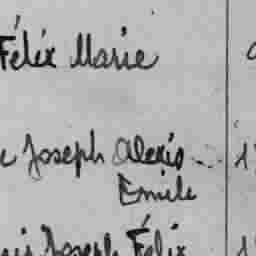 Félix Marie
Joseph Alexis
Emile
Joseph Félix